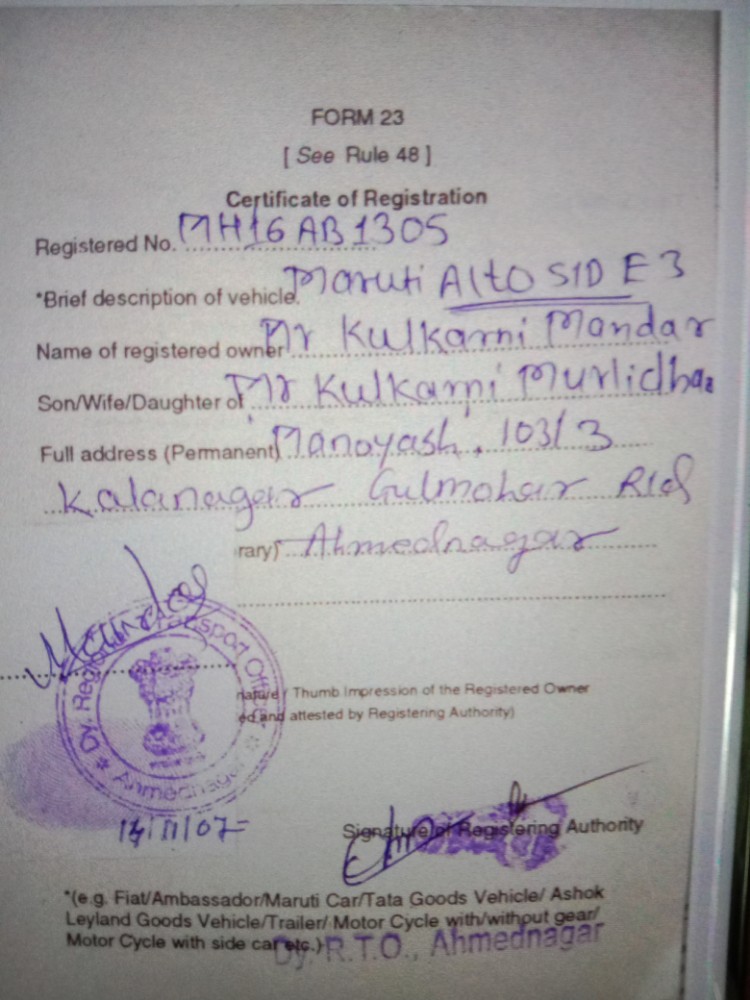 FORM 23
[ See Rule 48 ]
Certificate of Registration
Registered No. MH16 AB 1305
*Brief description of vehicle. Maruti Alto STD E 3
Name of registered owner Mr Kulkarni Mandar
Son/Wife/Daughter of Mr Kulkarni Murlidhar
Full address (Permanent) Manoyash, 103/3
Kalanagar Gulmohar Rd
rary) Ahmednagar
Dy. Regional Transport Officer
Ahmednagar
nature / Thumb Impression of the Registered Owner
ed and attested by Registering Authority)
/11/07
Signature of Registering Authority
*(e.g. Fiat/Ambassador/Maruti Car/Tata Goods Vehicle/ Ashok
Leyland Goods Vehicle/Trailer/ Motor Cycle with/without gear/
Motor Cycle with side car etc.)
Dy. R.T.O., Ahmednagar